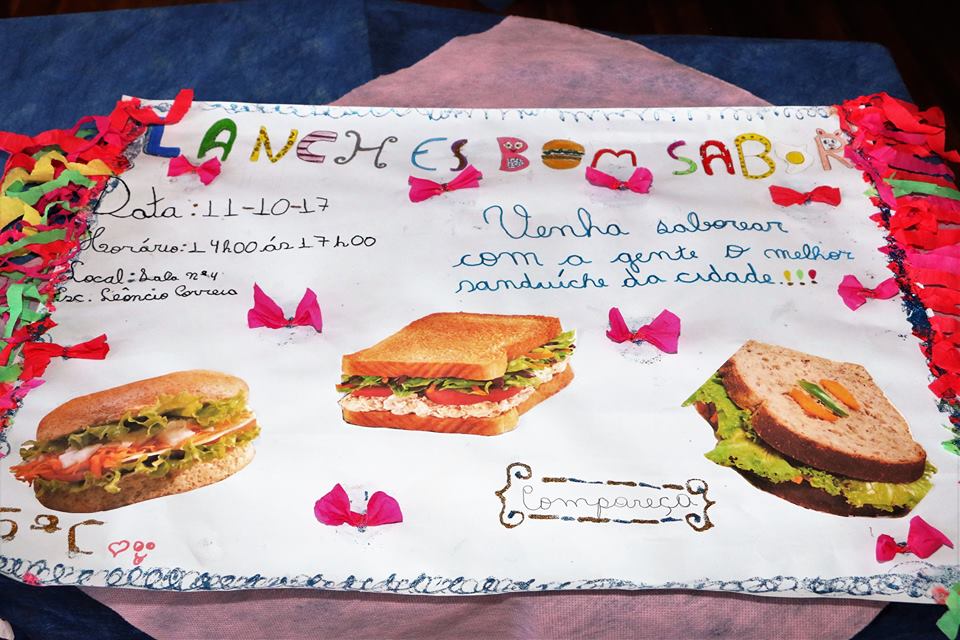 LANCHES BOM SABOR
Data: 11-10-17
Horário: 14h00 ás 17h00
Local: Sala nº4
Esc. Lêoncio Correia
Venha saborear
com a gente o melhor
sanduíche da cidade.!!!
Compareça
5ºC